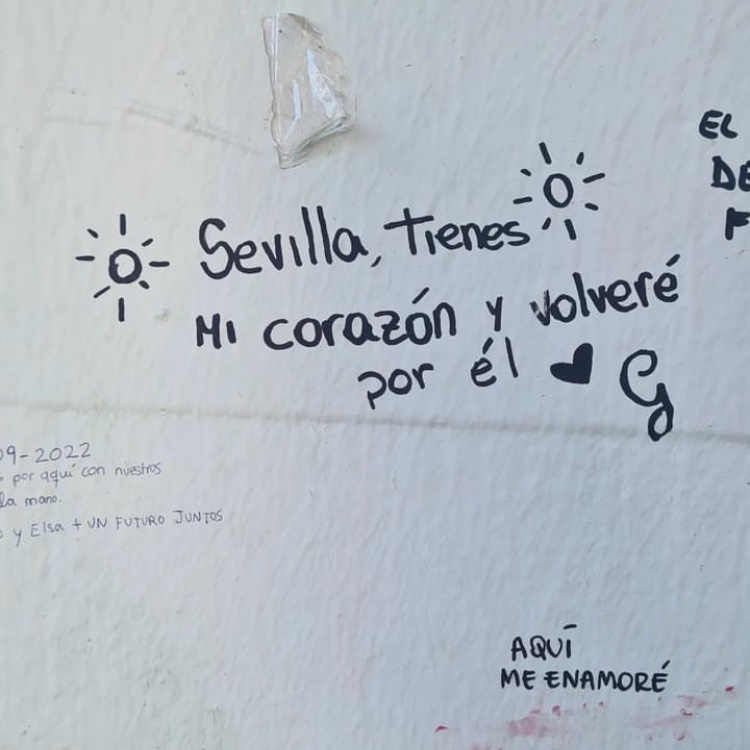 Sevilla, tienes
Mi corazón y volveré
por él ♥ G
EL
DE
F
09-2022
por aquí con nuestros
la mano.
y Elsa + UN FUTURO JUNTOS
AQUÍ
ME ENAMORÉ